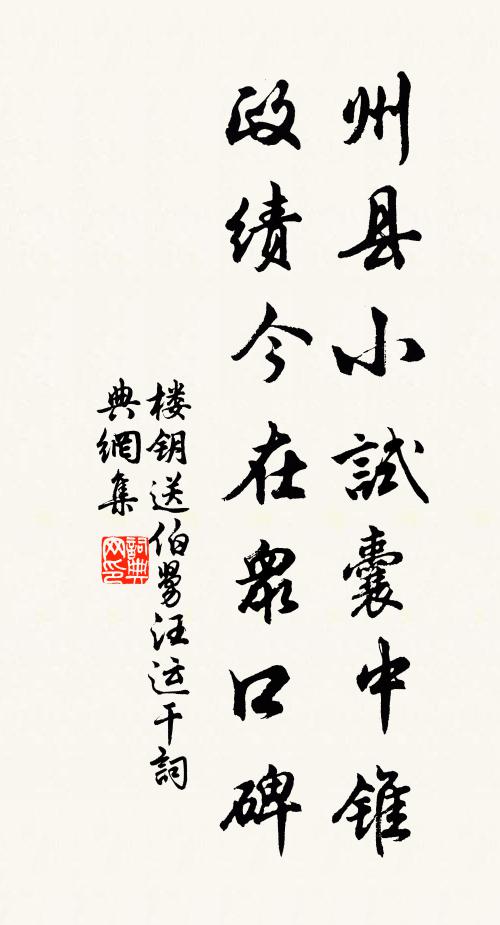 州县小試囊中錐
政绩今在衆口碑
楼钥送伯㬅汪运干詞
典網集
詞典
网印